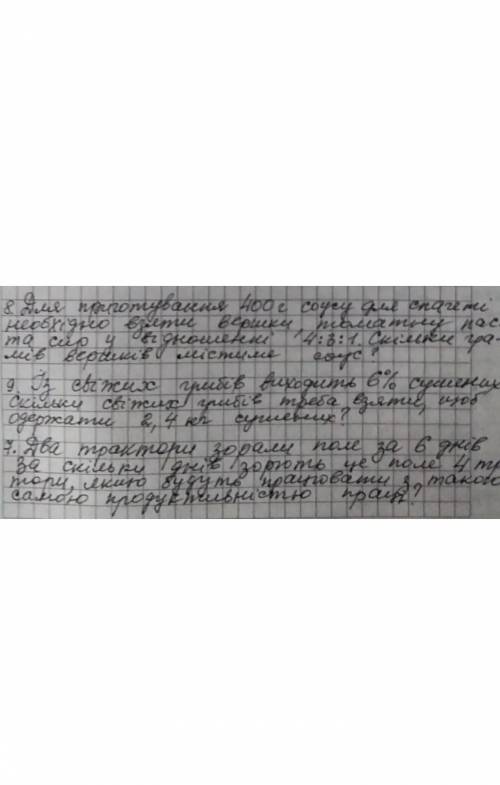 8. Для приготування 400 г соусу для спагеті
необхідно взяти вершки, томатну пас
та сир у відношенні 4:3:1. Скільки гра-
мів вершків містиме соус?
9. Із свіжих грибів виходить 6% сушених.
Скільки свіжих грибів треба взяти, щоб
одержати 2,4 кг сушених?
7. Два трактори зорали поле за 6 днів
За скільки днів зорють це поле 4 тр
тори, якщо будуть працювати з такою
самою продуктивністю праці?